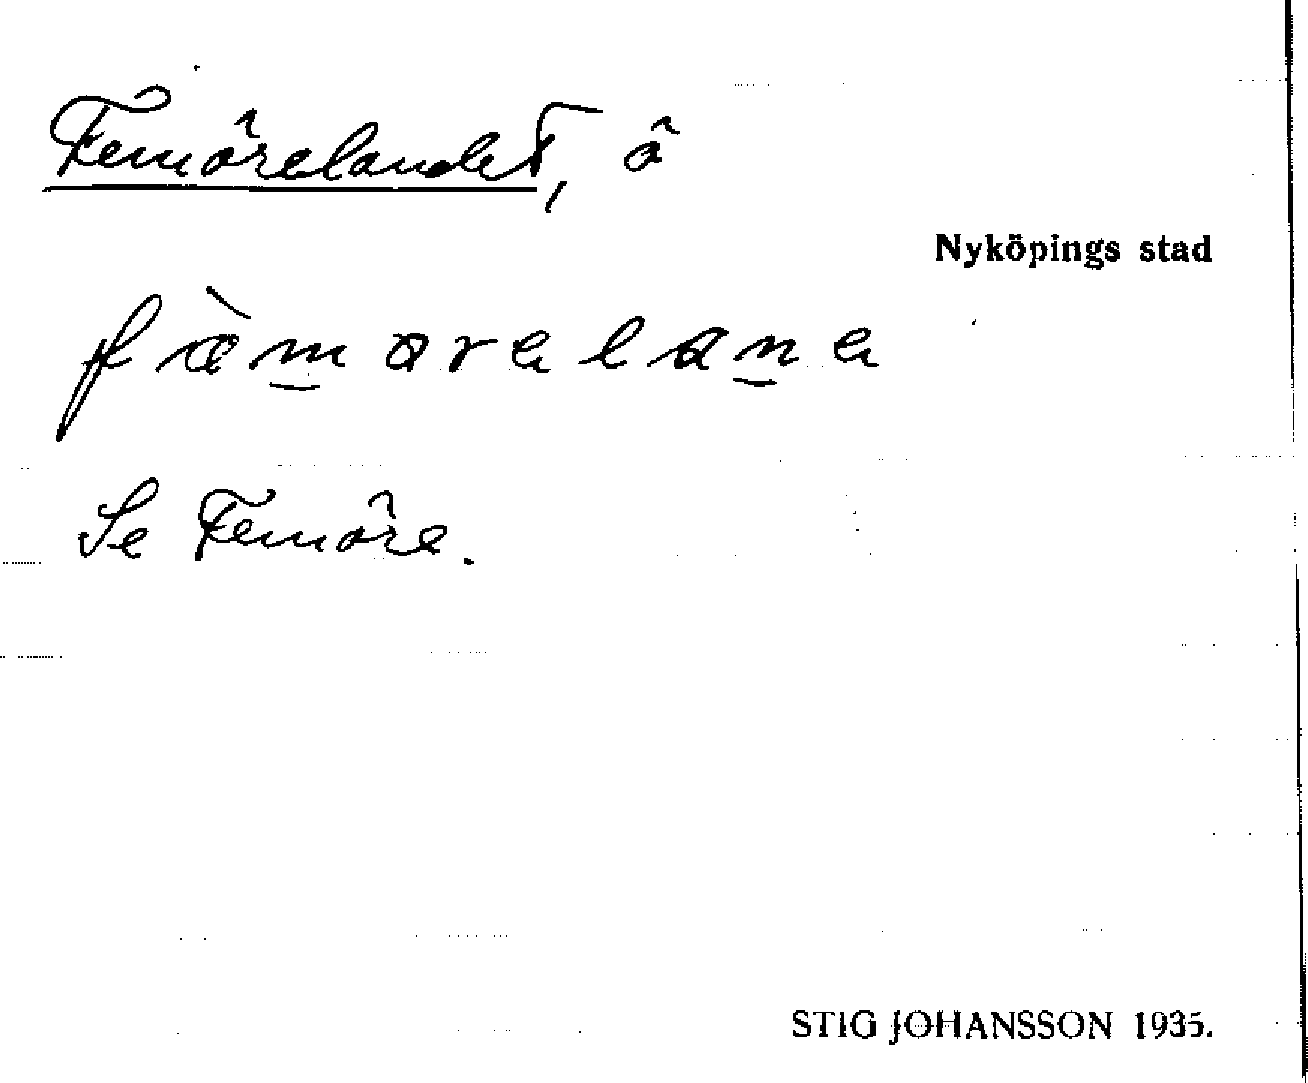 Femörelandet, ö
Nyköpings stad
Se Femöre.
STIG JOHANSSON 1935.